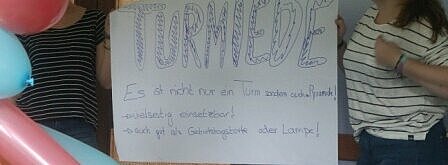 TURMIEDE
Es ist nicht nur ein Turm sondern auch Pyramide!
→ vielseitig einsetzbar!
→ auch gut als Geburtstagstorte oder Lampe!